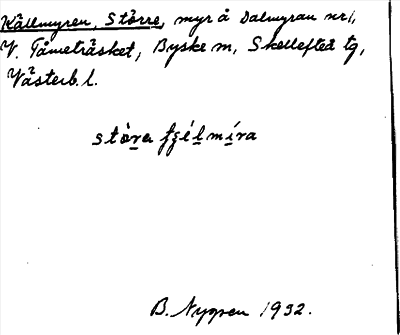 Källmyren, Större, myr å Dalmyran nr 1,
V. Fåmeträsket, Byske m, Skellefteå tg,
Västerb. l.
stòra fʒélmíra
B. Nyqen 1932.